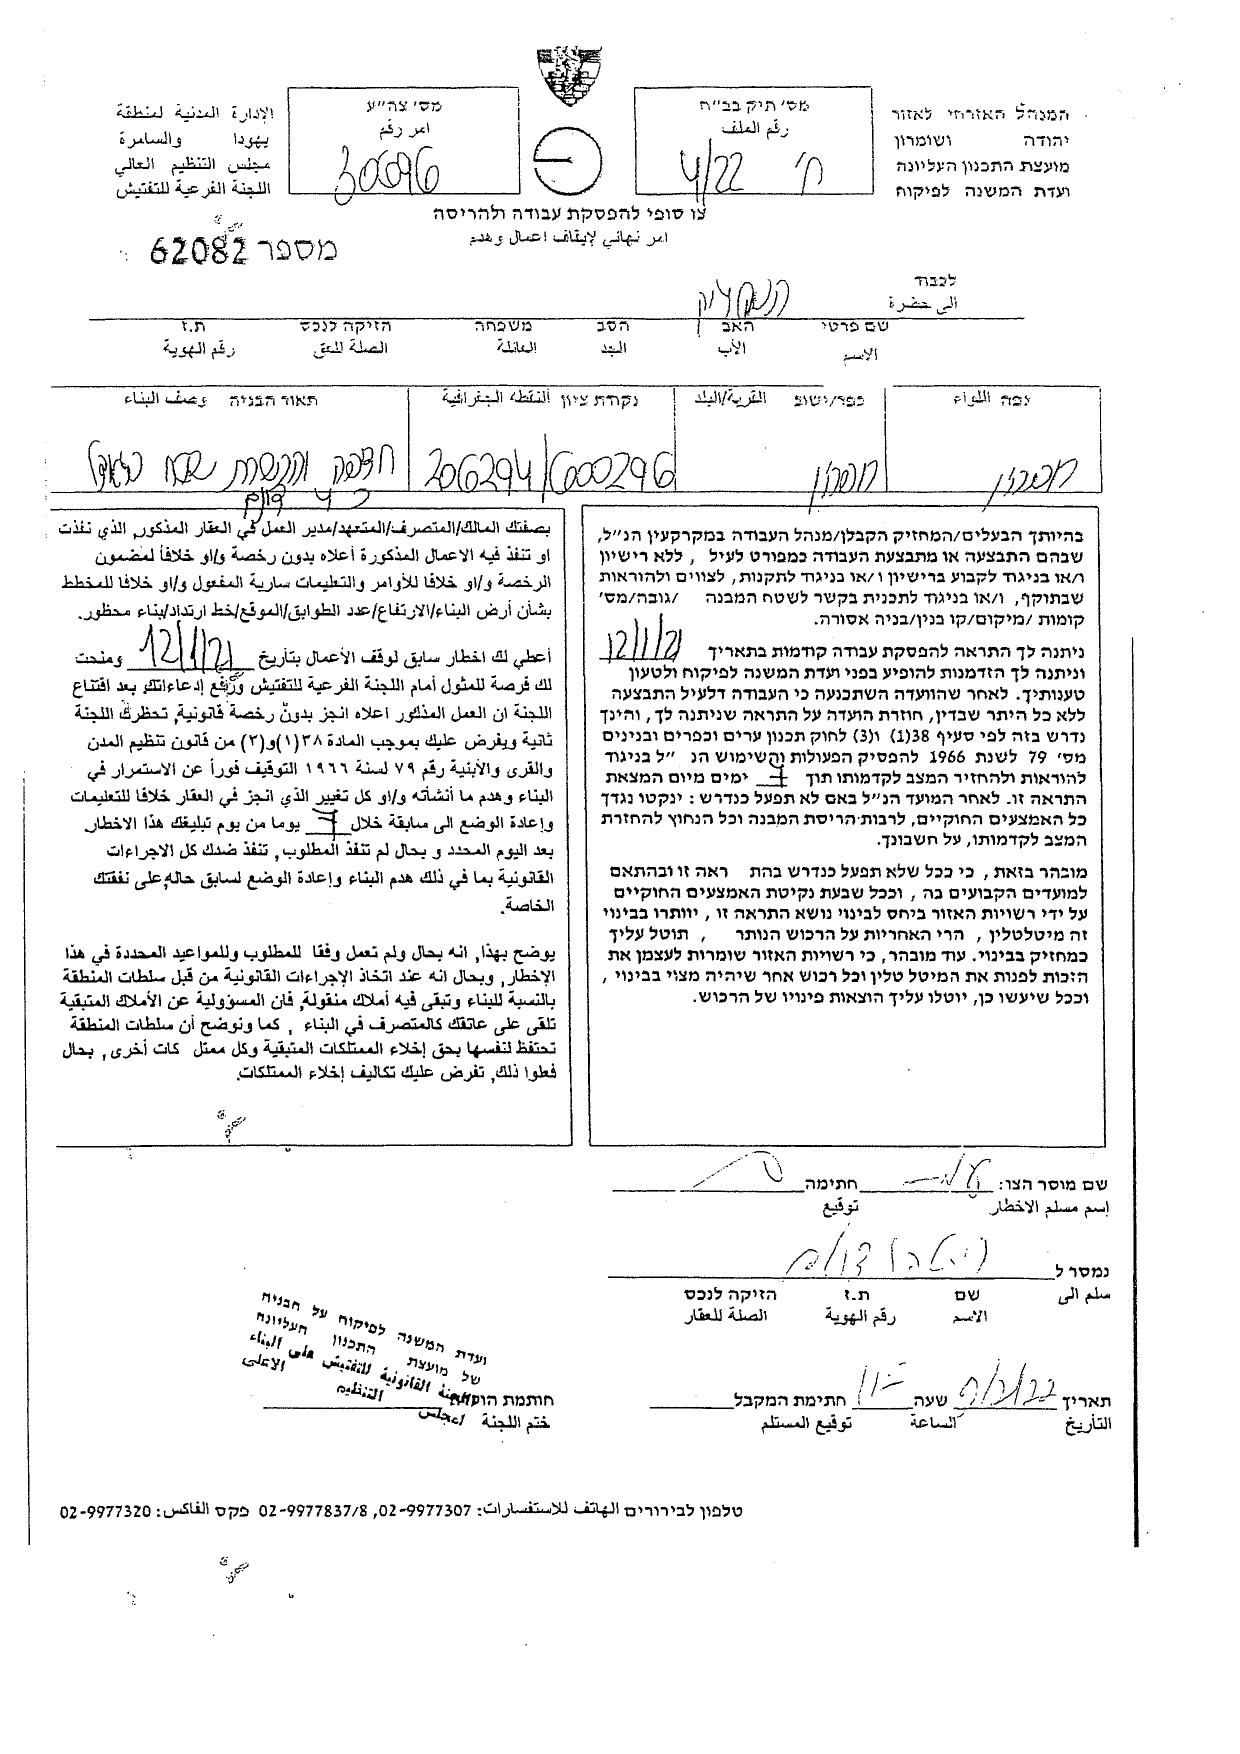 המנהל האזרחי לאזור
יהודה ושומרון
מועצת התכנון העליונה
ועדת המשנה לפיקוח
מס' תיק בב"ח
رقم الملف
ח' 4/22
מס' צה"ע
امر رقم
30696
الإدارة المدنية لمنطقة
يهودا والسامرة
مجلس التنظيم العالي
اللجنة الفرعية للتفتيش
צו סופי להפסקת עבודה ולהריסה
امر نهائي لإيقاف اعمال وهدم
מספר 62082
לכבוד
الى حضرة
שם פרטי האב הסב משפחה הזיקה לנכס ת.ז
الاسم الأب الجد العائلة الصلة للعقار رقم الهوية
נפה اللواء
כפר/ישוב القرية/البلد
נקודת ציון النقطة الجغرافية
תאור הבניה وصف البناء
206294/600296
חציבה והכשרת שטח
בהיותך הבעלים/המחזיק הקבלן/מנהל העבודה במקרקעין הנ"ל,
שבהם התבצעה או מתבצעת העבודה כמפורט לעיל, ללא רישיון
ו/או בניגוד לקבוע ברישיון ו/או בניגוד לתקנות, לצווים ולהוראות
שבתוקף, ו/או בניגוד לתכנית בקשר לשטח המבנה /גובה/מס'
קומות /מיקום/קו בנין/בניה אסורה.
ניתנה לך התראה להפסקת עבודה קודמות בתאריך 12/1/21
וניתנה לך הזדמנות להופיע בפני ועדת המשנה לפיקוח ולטעון
טענותיך. לאחר שהוועדה השתכנעה כי העבודה דלעיל התבצעה
ללא כל היתר שבדין, חוזרת הועדה על התראה שניתנה לך, והינך
נדרש בזה לפי סעיף 38(1) ו(3) לחוק תכנון ערים וכפרים ובנינים
מס' 79 לשנת 1966 להפסיק הפעולות והשימוש הנ"ל בניגוד
להוראות ולהחזיר המצב לקדמותו תוך 7 ימים מיום המצאת
התראה זו. לאחר המועד הנ"ל באם לא תפעל כנדרש: ינקטו נגדך
כל האמצעים החוקיים, לרבות הריסת המבנה וכל הנחוץ להחזרת
המצב לקדמותו, על חשבונך.
מובהר בזאת, כי ככל שלא תפעל כנדרש בהת ראה זו ובהתאם
למועדים הקבועים בה, וככל שבעת נקיטת האמצעים החוקיים
על ידי רשויות האזור ביחס לבינוי נושא התראה זו, יוותרו בבינוי
זה מיטלטלין, הרי האחריות על הרכוש הנותר, תוטל עליך
כמחזיק בבינוי. עוד מובהר, כי רשויות האזור שומרות לעצמן את
הזכות לפנות את המיטל טלין וכל רכוש אחר שיהיה מצוי בבינוי,
וככל שיעשו כן, יוטלו עליך הוצאות פינויו של הרכוש.
بصفتك المالك/المتصرف/المتعهد/مدير العمل في العقار المذكور, الذي نفذت
او تنفذ فيه الاعمال المذكورة أعلاه بدون رخصة و/او خلافاً لمضمون
الرخصة و/او خلافا للأوامر والتعليمات سارية المفعول و/او خلافا للمخطط
بشأن أرض البناء/الارتفاع/عدد الطوابق/الموقع/خط ارتداد/بناء محظور.
أعطي لك اخطار سابق لوقف الأعمال بتأريخ 12/1/21 ومنحت
لك فرصة للمثول أمام اللجنة الفرعية للتفتيش ورفع إدعاءاتك بعد اقتناع
اللجنة ان العمل المذكور اعلاه انجز بدون رخصة قانونية, تحظرك اللجنة
ثانية ويفرض عليك بموجب المادة ٣٨(١)و(٣) من قانون تنظيم المدن
والقرى والأبنية رقم ٧٩ لسنة ١٩٦٦ التوقيف فوراً عن الاستمرار في
البناء وهدم ما أنشأته و/او كل تغيير الذي انجز في العقار خلافا للتعليمات
وإعادة الوضع الى سابقة خلال 7 يوما من يوم تبليغك هذا الاخطار.
بعد اليوم المحدد و بحال لم تنفذ المطلوب, تنفذ ضدك كل الاجراءات
القانونية بما في ذلك هدم البناء وإعادة الوضع لسابق حاله على نفقتك
الخاصة.
يوضح بهذا, انه بحال ولم تعمل وفقا للمطلوب وللمواعيد المحددة في هذا
الإخطار, وبحال انه عند اتخاذ الإجراءات القانونية من قبل سلطات المنطقة
بالنسبة للبناء وتبقى فيه أملاك منقولة, فان المسؤولية عن الأملاك المتبقية
تلقى على عاتقك كالمتصرف في البناء, كما ونوضح أن سلطات المنطقة
تحتفظ لنفسها بحق إخلاء الممتلكات المتبقية وكل ممتل كات أخرى, بحال
فعلوا ذلك, تفرض عليك تكاليف إخلاء الممتلكات.
שם מוסר הצו: חתימה
إسم مسلم الاخطار توقيع
נמסר ל
שם ת.ז הזיקה לנכס
سلم الى الاسم رقم الهوية الصلة للعقار
ועדת המשנה לפיקוח על הבניה
של מועצת התכנון העליונה
اللجنة القانونية للتفتيش على البناء
مجلس التنظيم الاعلى
תאריך שעה חתימת המקבל חותמת
التأريخ الساعة توقيع المستلم ختم اللجنة
טלפון לבירורים الهاتف للاستفسارات: 02-9977307, 02-9977837/8 פקס الفاكس: 02-9977320